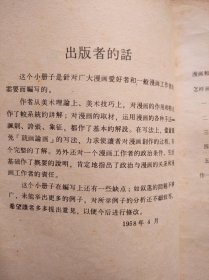 出版者的話
这个小册子是針对广大漫画爱好者和一般漫画工作者的
需要而編写的。
作者从美术理論上、美术技巧上，对漫画的作用
作了較系統的講解；对漫画的取材，运用漫画的各种手法
諷刺、誇張、象征，都作了基本的解說。在写法上，
免「談画論画」的写法，力求使讀者对漫画創作的过程，
个完整的了解。另外还对一个漫画工作者的政治条件、生活
基础作了概要的說明，肯定地指出了政治与漫画的关系和
画工作者的責任。
这个小册子在編写上还有一些缺点；如取选的
广，未能举出更多的例子，对所举示例子的分析还不
希望讀者多多提出意見，以便今后进行修改。
1958年4月